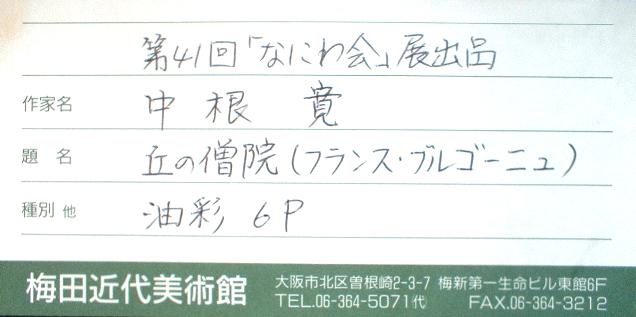 第41回「なにわ会」展出品
作家名 中根 寛
題 名 丘の僧院(フランス・ブルゴーニュ)
種別 他 油彩 6P
梅田近代美術館 大阪市北区曽根崎2-3-7 梅新第一生命ビル東館6F
TEL.06-364-5071㈹ FAX.06-364-3212